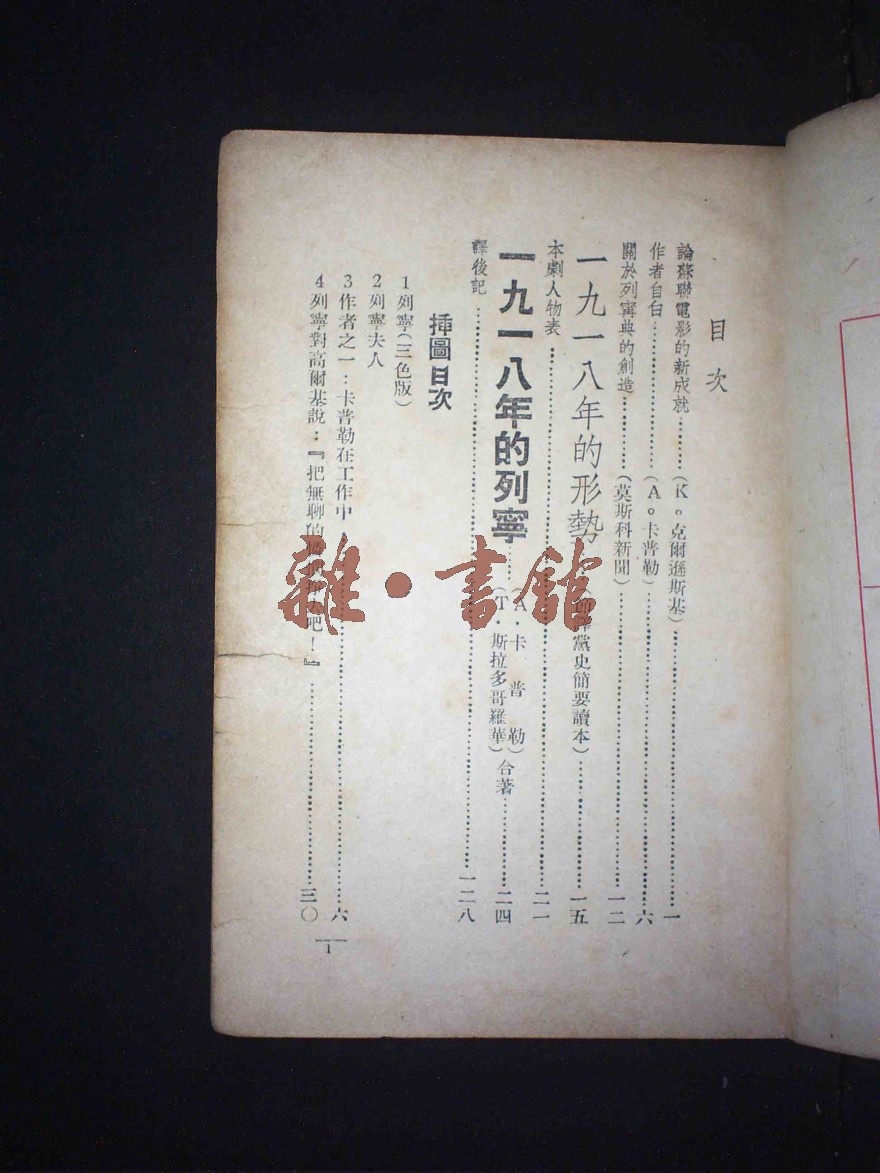 目次
論蘇聯電影的新成就………(K。克爾遜斯基)………一
作者自白………(A。卡普勒)………六
關於列甯典的創造………(莫斯科新聞)………一二
一九一八年的形勢……黨史簡要讀本)………一五
本劇人物表………二一
一九一八年的列寧……(A・卡普勒)(T・斯拉多哥羅華)合著………二四
譯後記………一二八
插圖目次
1列寧(三色版)
2列寧夫人
3作者之一：卡普勒在工作中………六
4列寧對高爾基說：『把無聊的吧！』………三〇
1
雜・書館